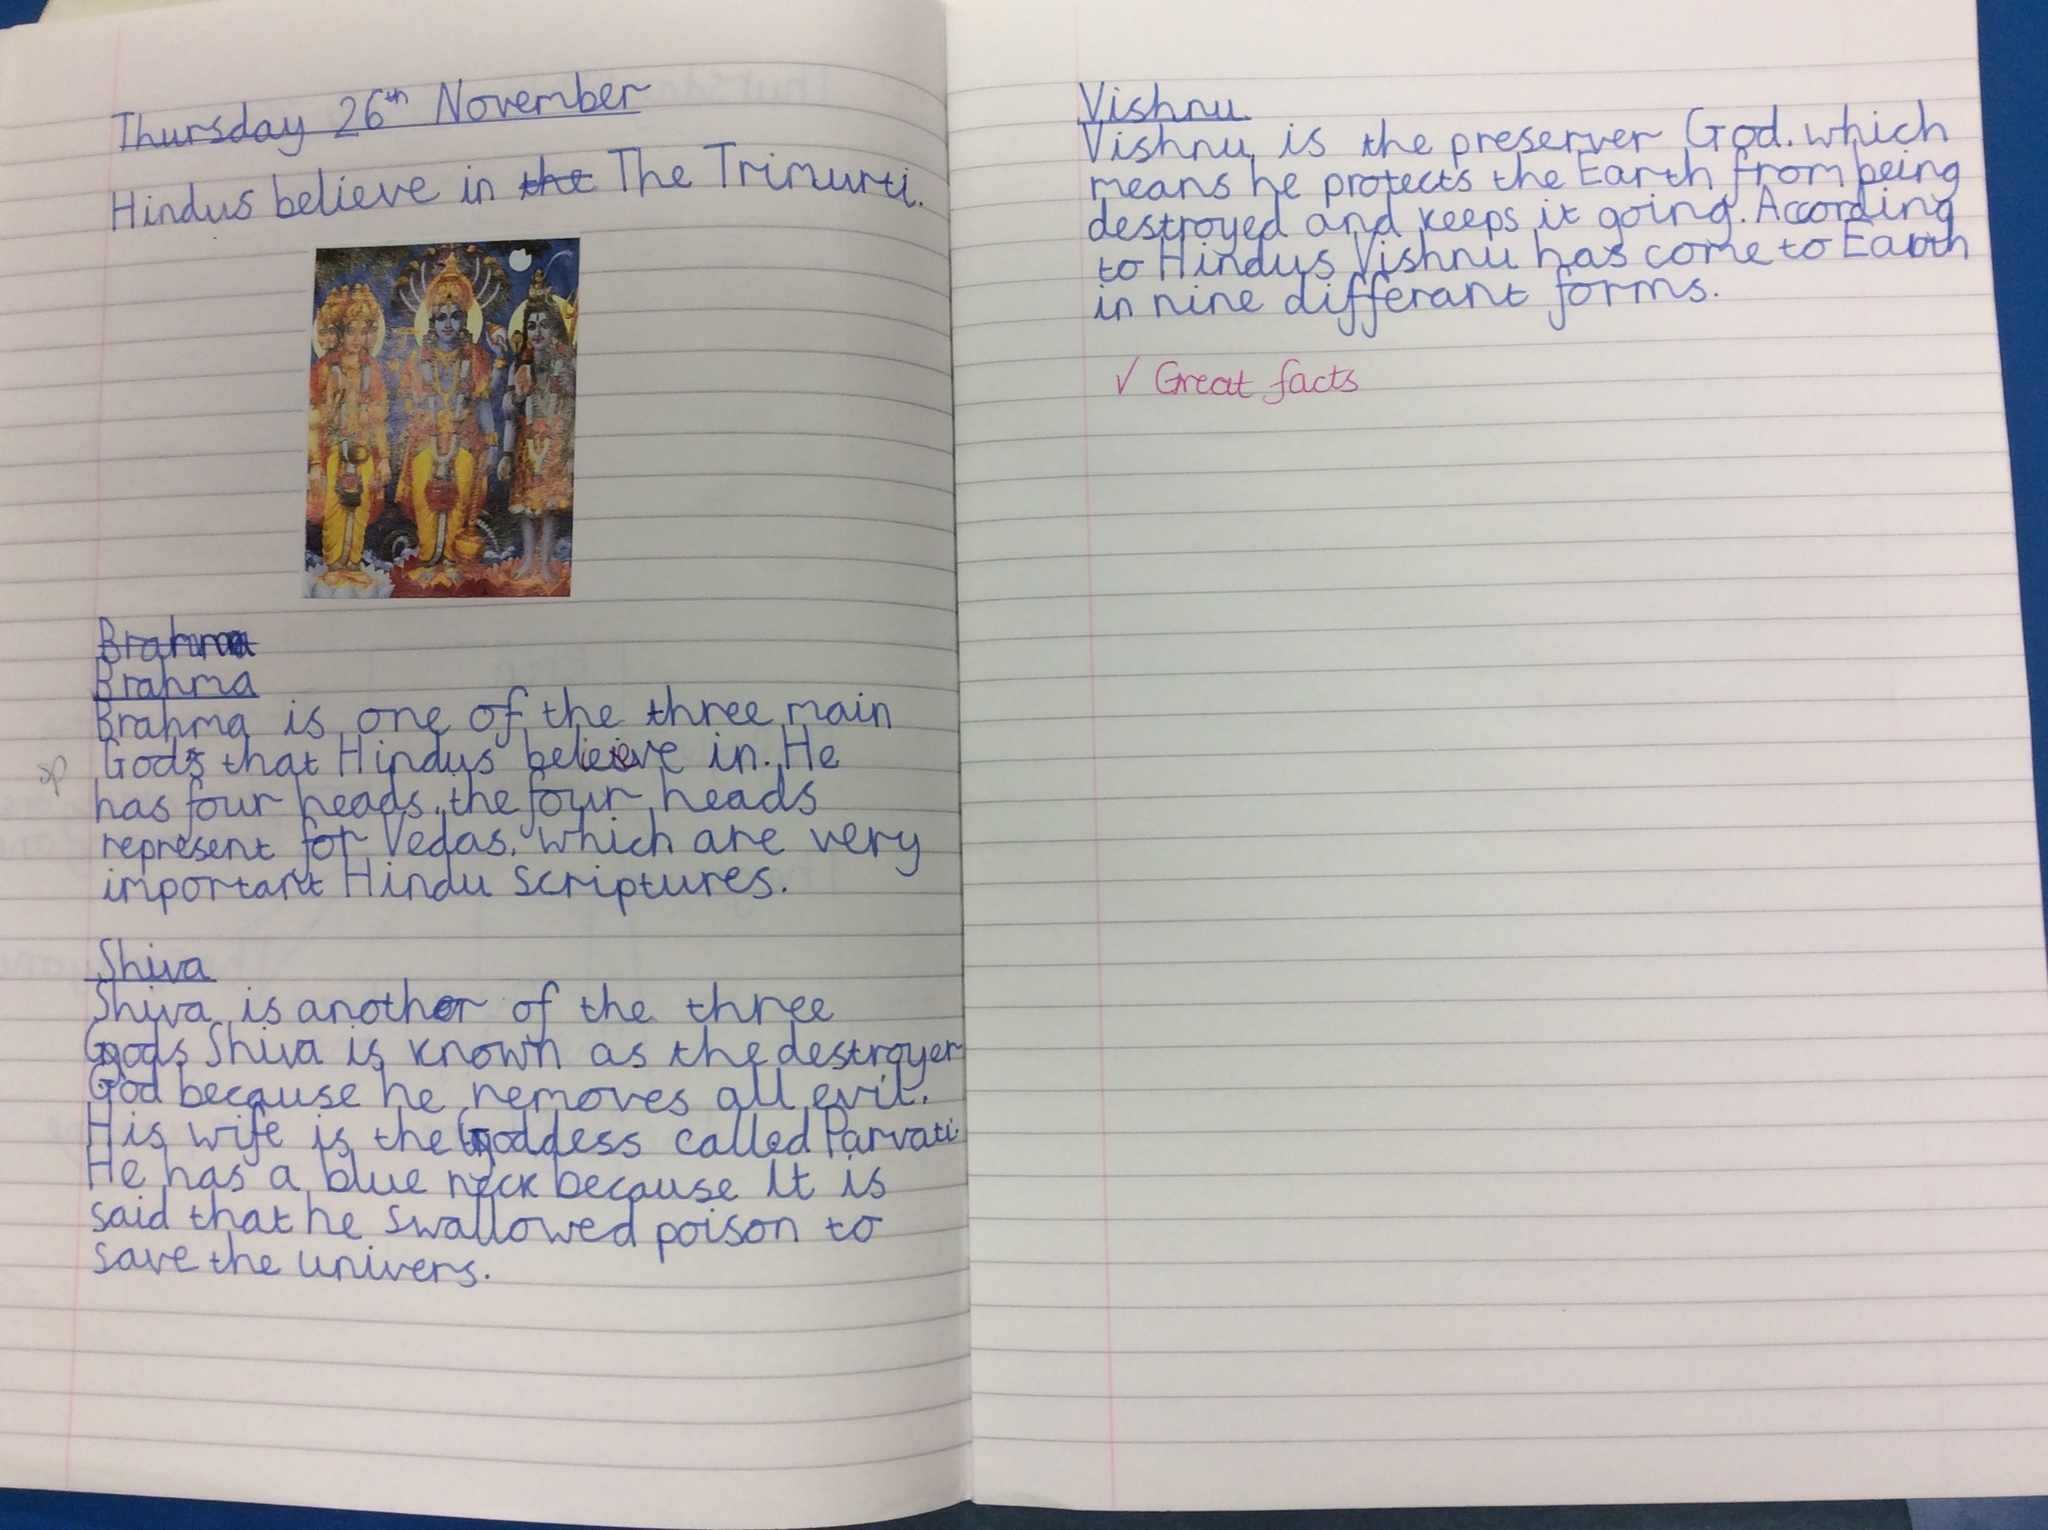 Thursday 26th November
Hindus believe in the The Trimurti.
Brahma
Brahma
Brahma is one of the three main
Gods that Hindus believe in. He
has four heads, the four heads
represent for Vedas. which are very
important Hindu scriptures.
sp
Shiva
Shiva is another of the three
Gods Shiva is known as the destroyer
God because he removes all evil.
His wife is the Goddess called Parvati
He has a blue neck because it is
said that he swallowed poison to
save the univers.
Vishnu
Vishnu is the preserver God. which
means he protects the Earth from being
destroyed and keeps it going. According
to Hindus Vishnu has come to Earth
in nine differant forms.
✓ Great facts